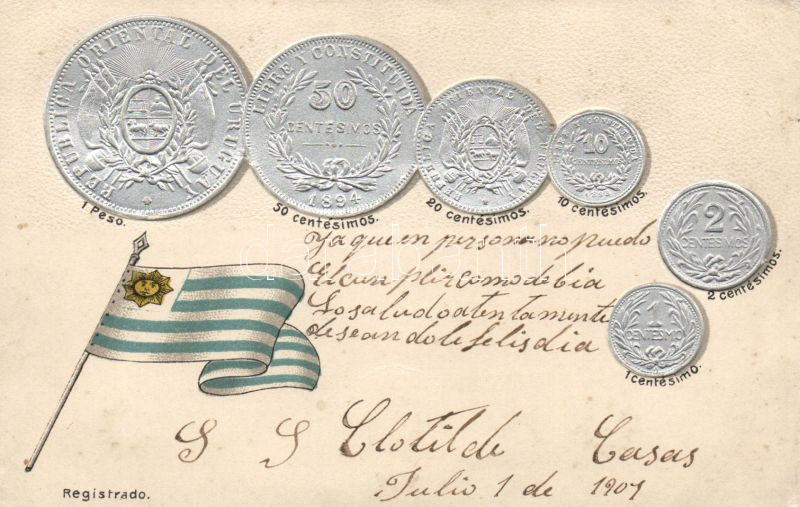 REPUBLICA ORIENTAL DEL URUGUAY
1 Peso.
LIBRE Y CONSTITUIDA
50
CENTÉSIMOS
1894
50 centésimos.
REPUBLICA ORIENTAL DEL URUGUAY
20 centésimos.
LIBRE Y CONSTITUIDA
10
CENTESIMOS
10 centésimos.
2
CENTESIMOS
2 centésimos.
1
CENTESIMO
1 centésimo.
Ya que en persona no puedo
El cunplir como debia
Lo saludo atentamente
deseandole felis dia
S S Clotilde Casas
Julio 1 de 1907
Registrado.
darabanth